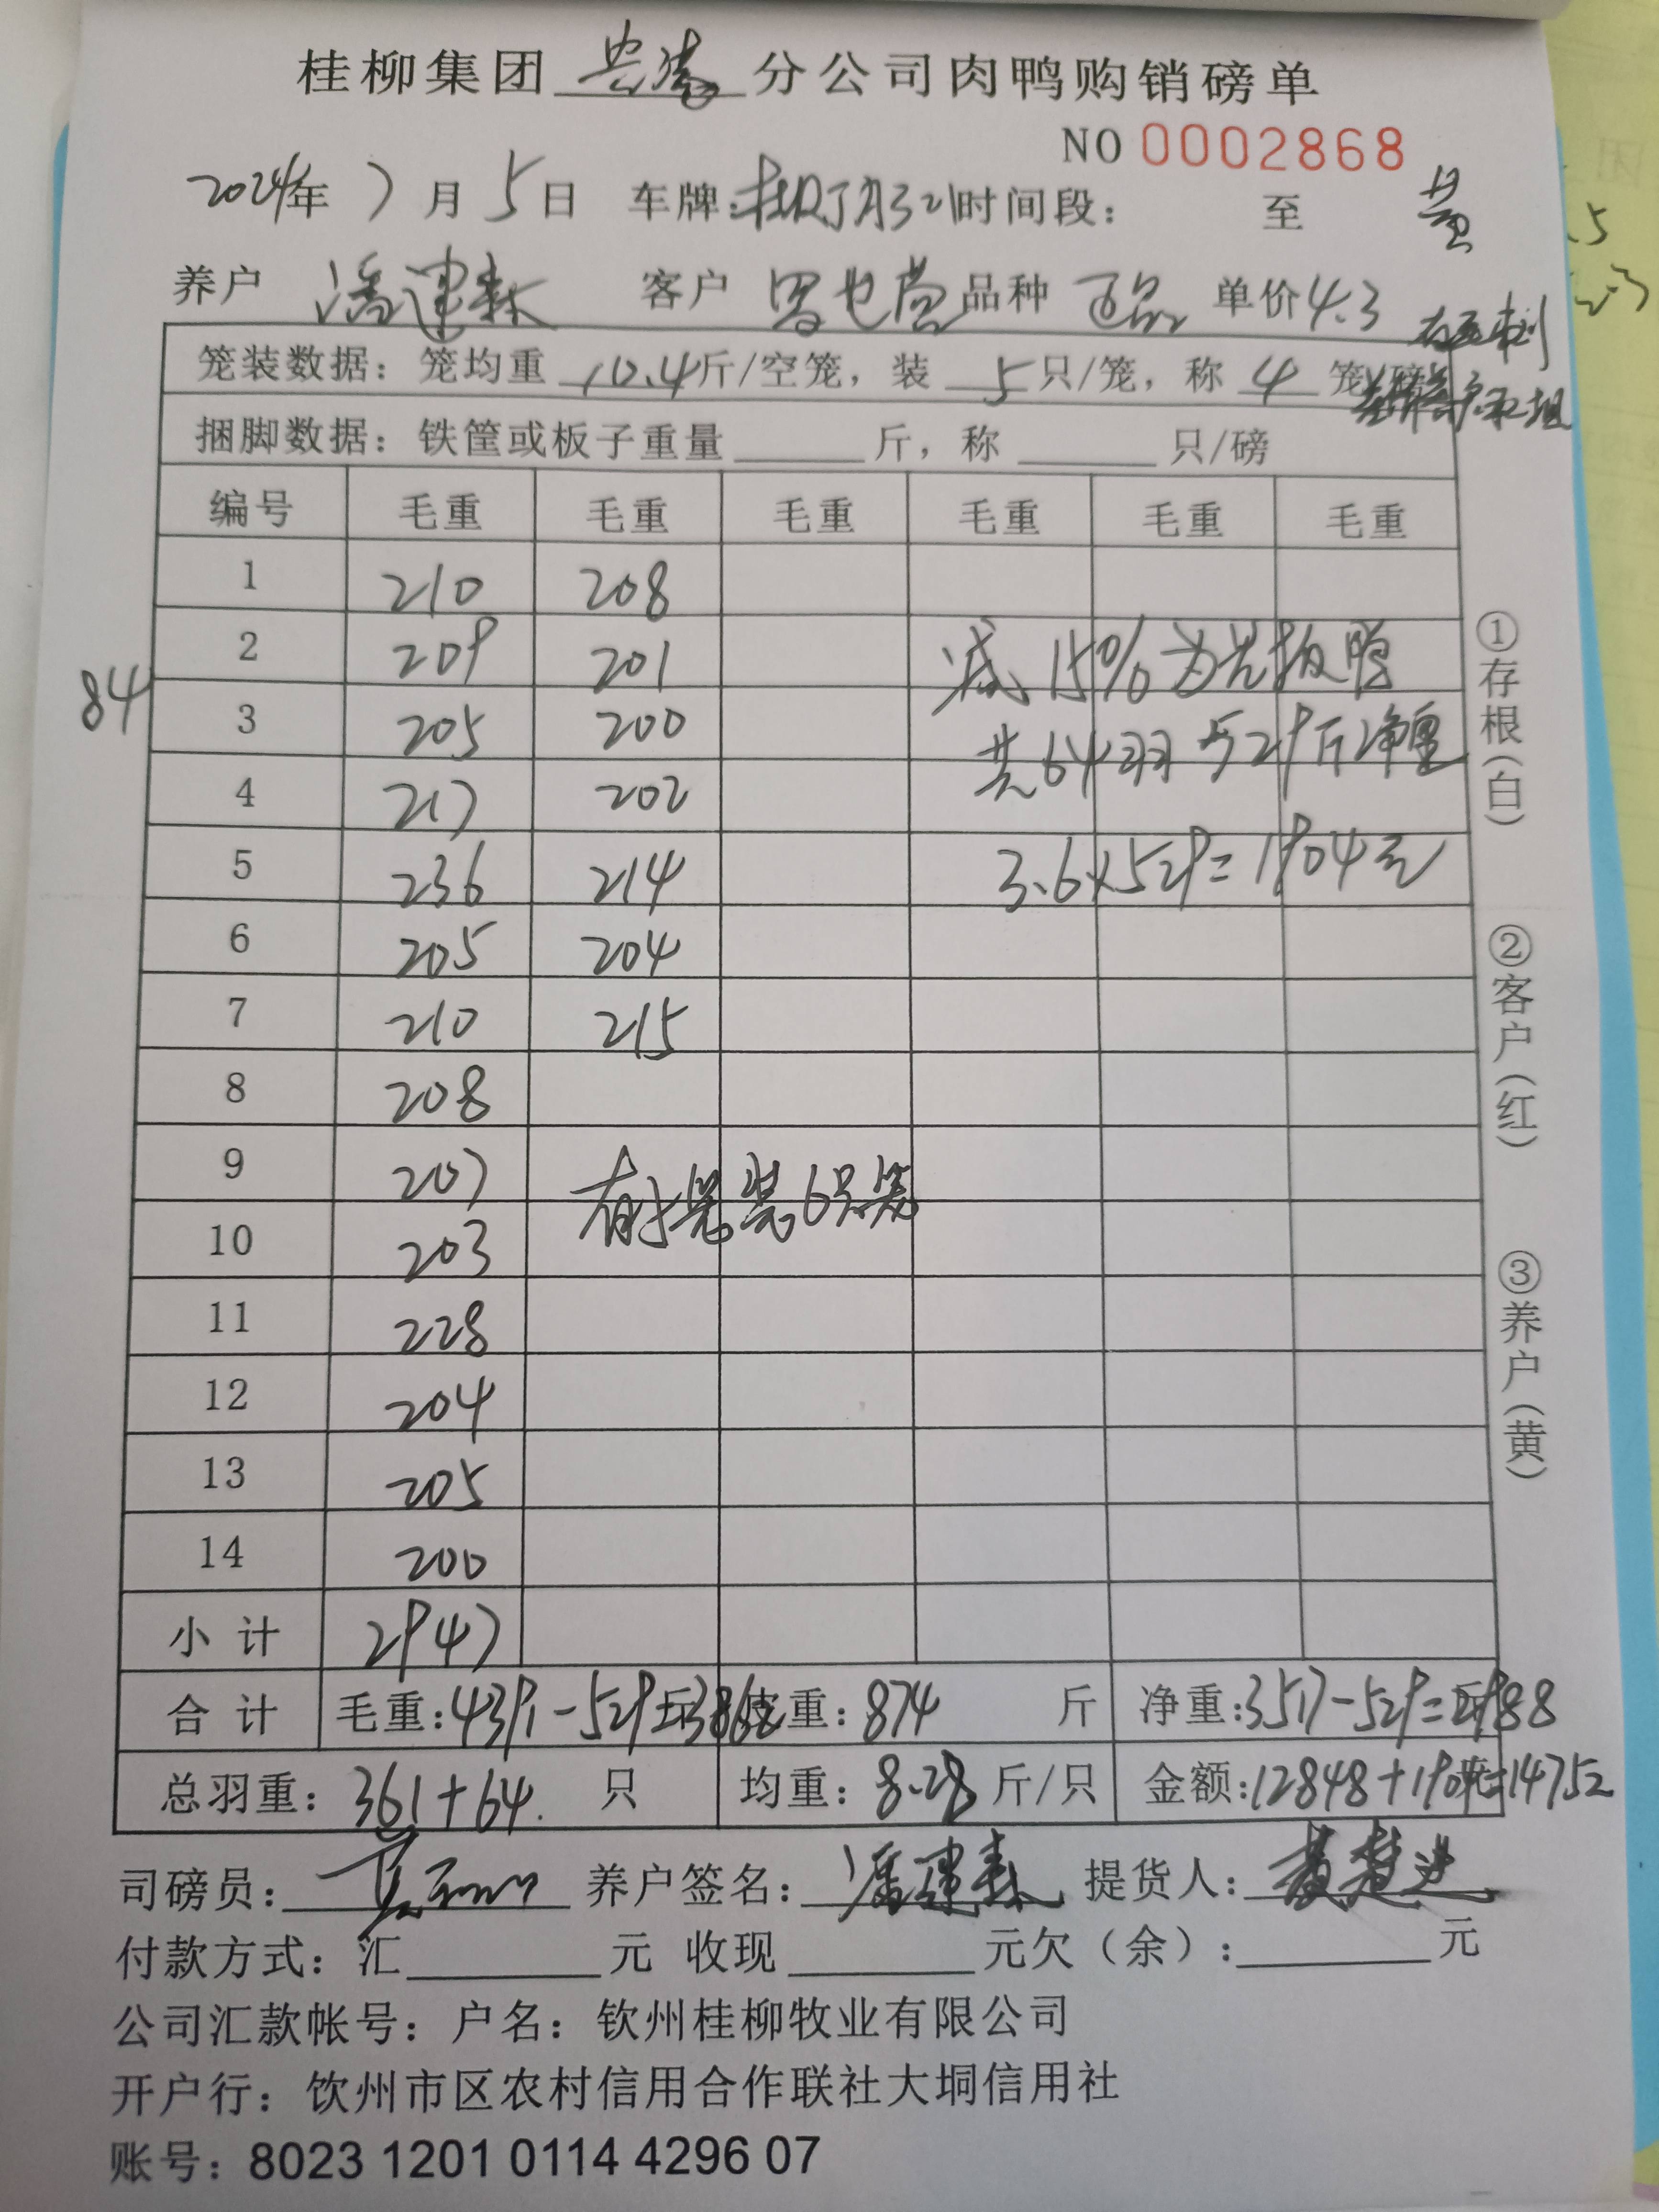 桂柳集团 分公司肉鸭购销磅单
NO 0002868
2024年 7月 5日 车牌: 时间段: 至
养户 潘建森 客户 品种 单价4.3
笼装数据: 笼均重 10.4斤/空笼, 装 5只/笼, 称 4 笼/磅
捆脚数据: 铁筐或板子重量 斤, 称 只/磅
编号 毛重 毛重 毛重 毛重 毛重 毛重
1 210 208
2 209 201 减15%为光板鸭
84
3 205 200 共64羽 529斤净重
4 217 202
5 236 214 3.6×529=1904元
6 205 204
7 210 215
8 208
9 207
10 203
11 228
12 204
13 205
14 200
小计 2947
合计 毛重:4391-529=3862 皮重: 874 斤 净重:3517-529=2988
总羽重: 361+64 只 均重: 8.28 斤/只 金额:12848+1904=14752
司磅员: 养户签名: 潘建森 提货人:
付款方式: 汇 元 收现 元欠(余): 元
公司汇款帐号: 户名: 钦州桂柳牧业有限公司
开户行: 钦州市区农村信用合作联社大垌信用社
账号: 8023 1201 0114 4296 07
①存根(白)
②客户(红)
③养户(黄)